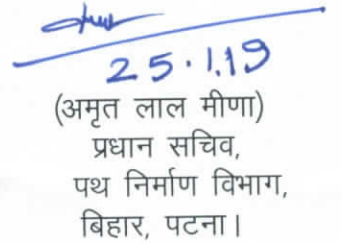 25.1.19
(अमृत लाल मीणा)
प्रधान सचिव,
पथ निर्माण विभाग,
बिहार, पटना।